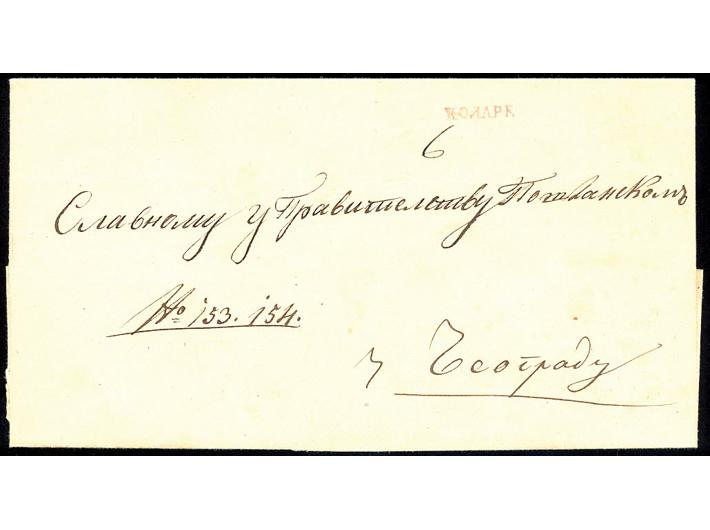 КОЛАРЕ
6
Славному у Правителству
№ 153. 154.
у Београду